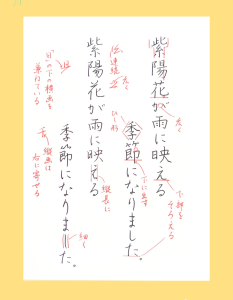 紫陽花が雨に映える
季節になりました。
紫陽花が雨に映える
季節になりました。
太く
下に出す
下揃を
そろえる
ひし形
太く
連続
縦長に
細く
「日」の下の横画を
兼ねている
縦画は
右に寄せる